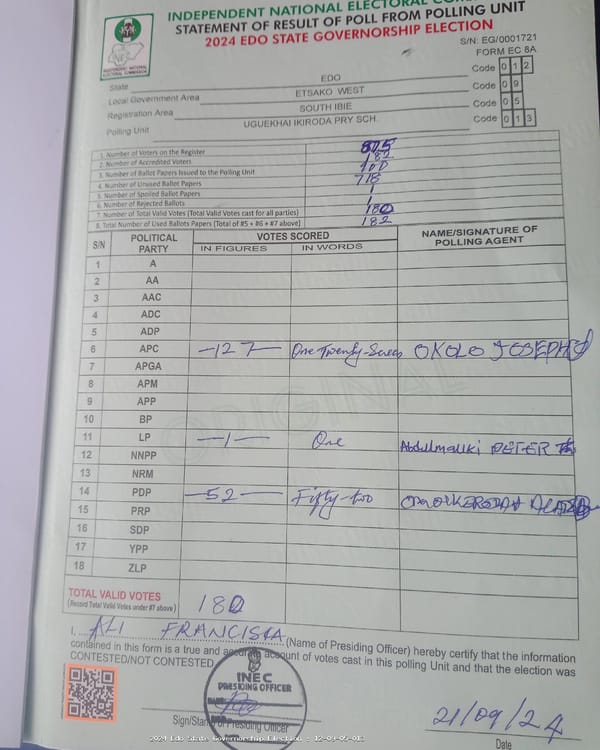 INDEPENDENT NATIONAL ELECTORAL
STATEMENT OF RESULT OF POLL FROM POLLING UNIT
2024 EDO STATE GOVERNORSHIP ELECTION
S/N: EG/0001721
FORM EC 8A
INDEPENDENT NATIONAL ELECTORAL COMMISSION
State EDO Code 0 1 2
Local Government Area ETSAKO WEST Code 0 9
Registration Area SOUTH IBIE Code 0 5
Polling Unit UGUEKHAI IKIRODA PRY SCH. Code 0 1 3
1. Number of Voters on the Register 805
2. Number of Accredited Voters 182
3. Number of Ballot Papers Issued to the Polling Unit 900
4. Number of Unused Ballot Papers 718
5. Number of Spoiled Ballot Papers 1
6. Number of Rejected Ballots 1
7. Number of Total Valid Votes (Total Valid Votes cast for all parties) 180
8. Total Number of Used Ballots Papers (Total of #5 + #6 + #7 above) 182
S/N POLITICAL PARTY VOTES SCORED NAME/SIGNATURE OF POLLING AGENT
IN FIGURES IN WORDS
1 A
2 AA
3 AAC
4 ADC
5 ADP
6 APC -127- One Twenty-Seven OKOLO JOSEPH
7 APGA
8 APM
9 APP
10 BP
11 LP -1- One Abdulmaliki PETER
12 NNPP
13 NRM
14 PDP -52- Fifty-two
15 PRP
16 SDP
17 YPP
18 ZLP
TOTAL VALID VOTES
(Record Total Valid Votes under #7 above) 180
ORIGINAL
I, ALI FRANCISCA (Name of Presiding Officer) hereby certify that the information
contained in this form is a true and accurate account of votes cast in this polling Unit and that the election was
CONTESTED/NOT CONTESTED
INEC
PRESIDING OFFICER
Sign/Stamp of Presiding Officer
21/09/24
Date
2024 Edo State Governorship Election - 12-09-05-013